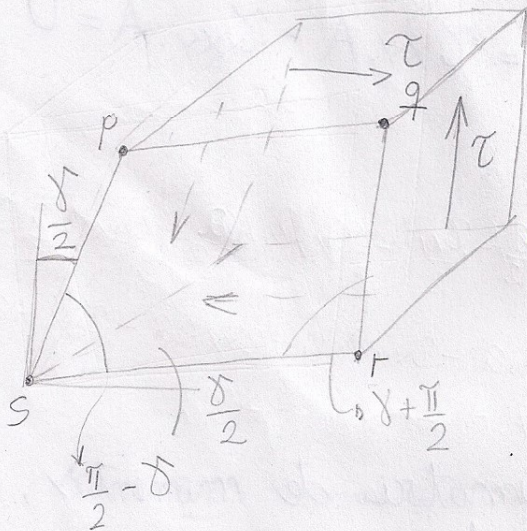 τ
P
q
τ
γ/2
r
S
γ/2
γ + π/2
π/2 - γ